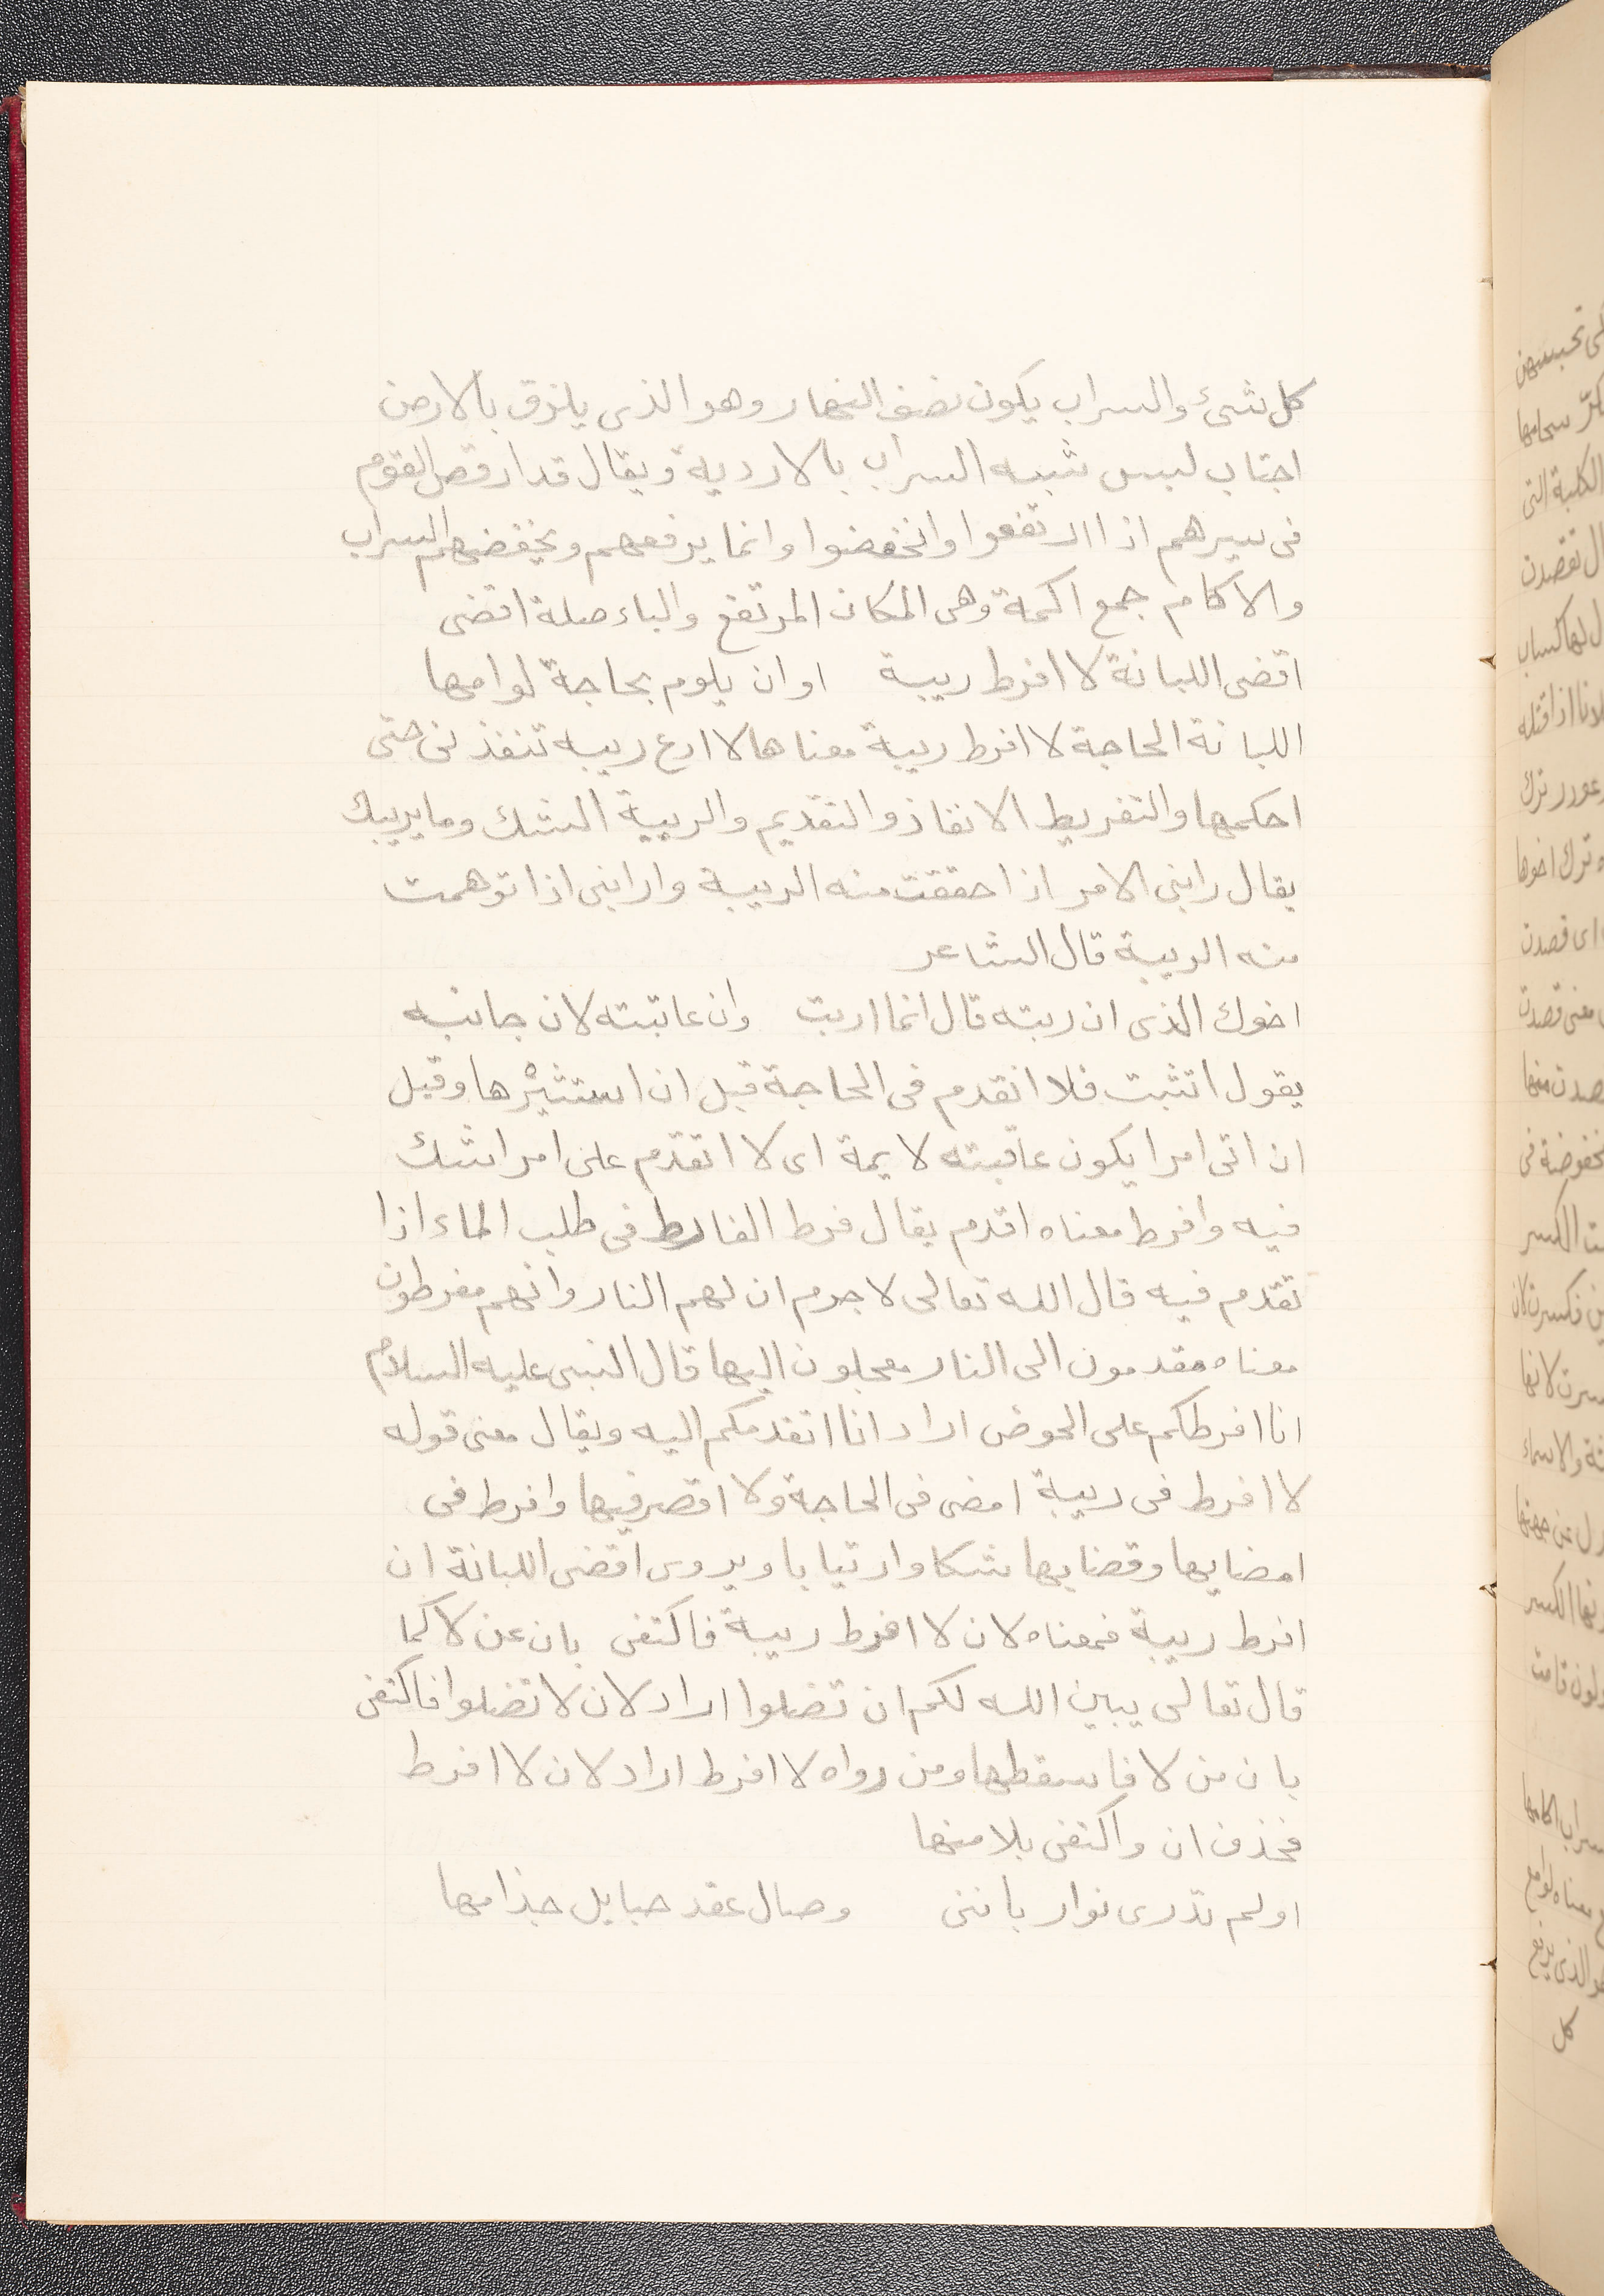 كل شىء والسراب يكون نصف النهار وهو الذى يلزق بالارض
اجتاب لبس شبه السراب بالاردية ويقال قد ارقص القوم
فى سيرهم اذا ارتفعوا وانخفضوا وانما يرفعهم ويخفضهم السراب
والاكام جمع اكمة وهى المكان المرتفع والباء صلة اقضى
اقضى اللبانة لا افرط ريبة او ان يلوم بحاجة لوامها
اللبانة الحاجة لا افرط ريبة معناها لا ادع ريبه تنفذنى حتى
احكمها والتفريط الانفاذ والتقديم والريبة الشك وما يريبك
يقال رابنى الامر اذا حققت منه الريبة وارابنى اذا توهمت
منه الريبة قال الشاعر
اخوك الذى ان ربته قال انما اربت وان عاتبته لان جانبه
يقول اتثبت فلا اتقدم فى الحاجة قبل ان استثيرها وقيل
ان اتى امرا يكون عاقبته لايمة اى لا اتقدم على امر اشك
فيه وافرط معناه اقدم يقال فرط الفارط فى طلب الماء اذا
تقدم فيه قال الله تعالى لا جرم ان لهم النار وانهم مفرطون
معناه مقدمون الى النار معجلون اليها قال النبى عليه السلام
انا افرطكم على الحوض اراد انا اتقدمكم اليه ويقال معنى قوله
لا افرط فى ريبة امضى فى الحاجة ولا اقصر فيها وافرط فى
امضايها وقضايها شكا وارتيابا ويروى اقضى اللبانة ان
افرط ريبة فمعناه لان لا افرط ريبة فاكتفى بان عن لا كما
قال تعالى يبين الله لكم ان تضلوا اراد لان لا تضلوا فاكتفى
بان من لا فاسقطها ومن رواه لا افرط اراد لان لا افرط
فحذف ان واكتفى بلا منها
اولم تدرى نوار باننى وصال عقد حبايل جذامها